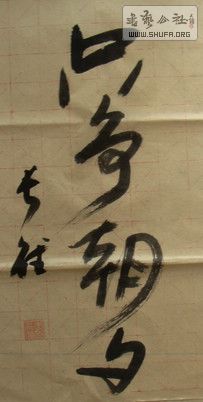 只争朝夕
书艺公社
WWW.SHUFA.ORG